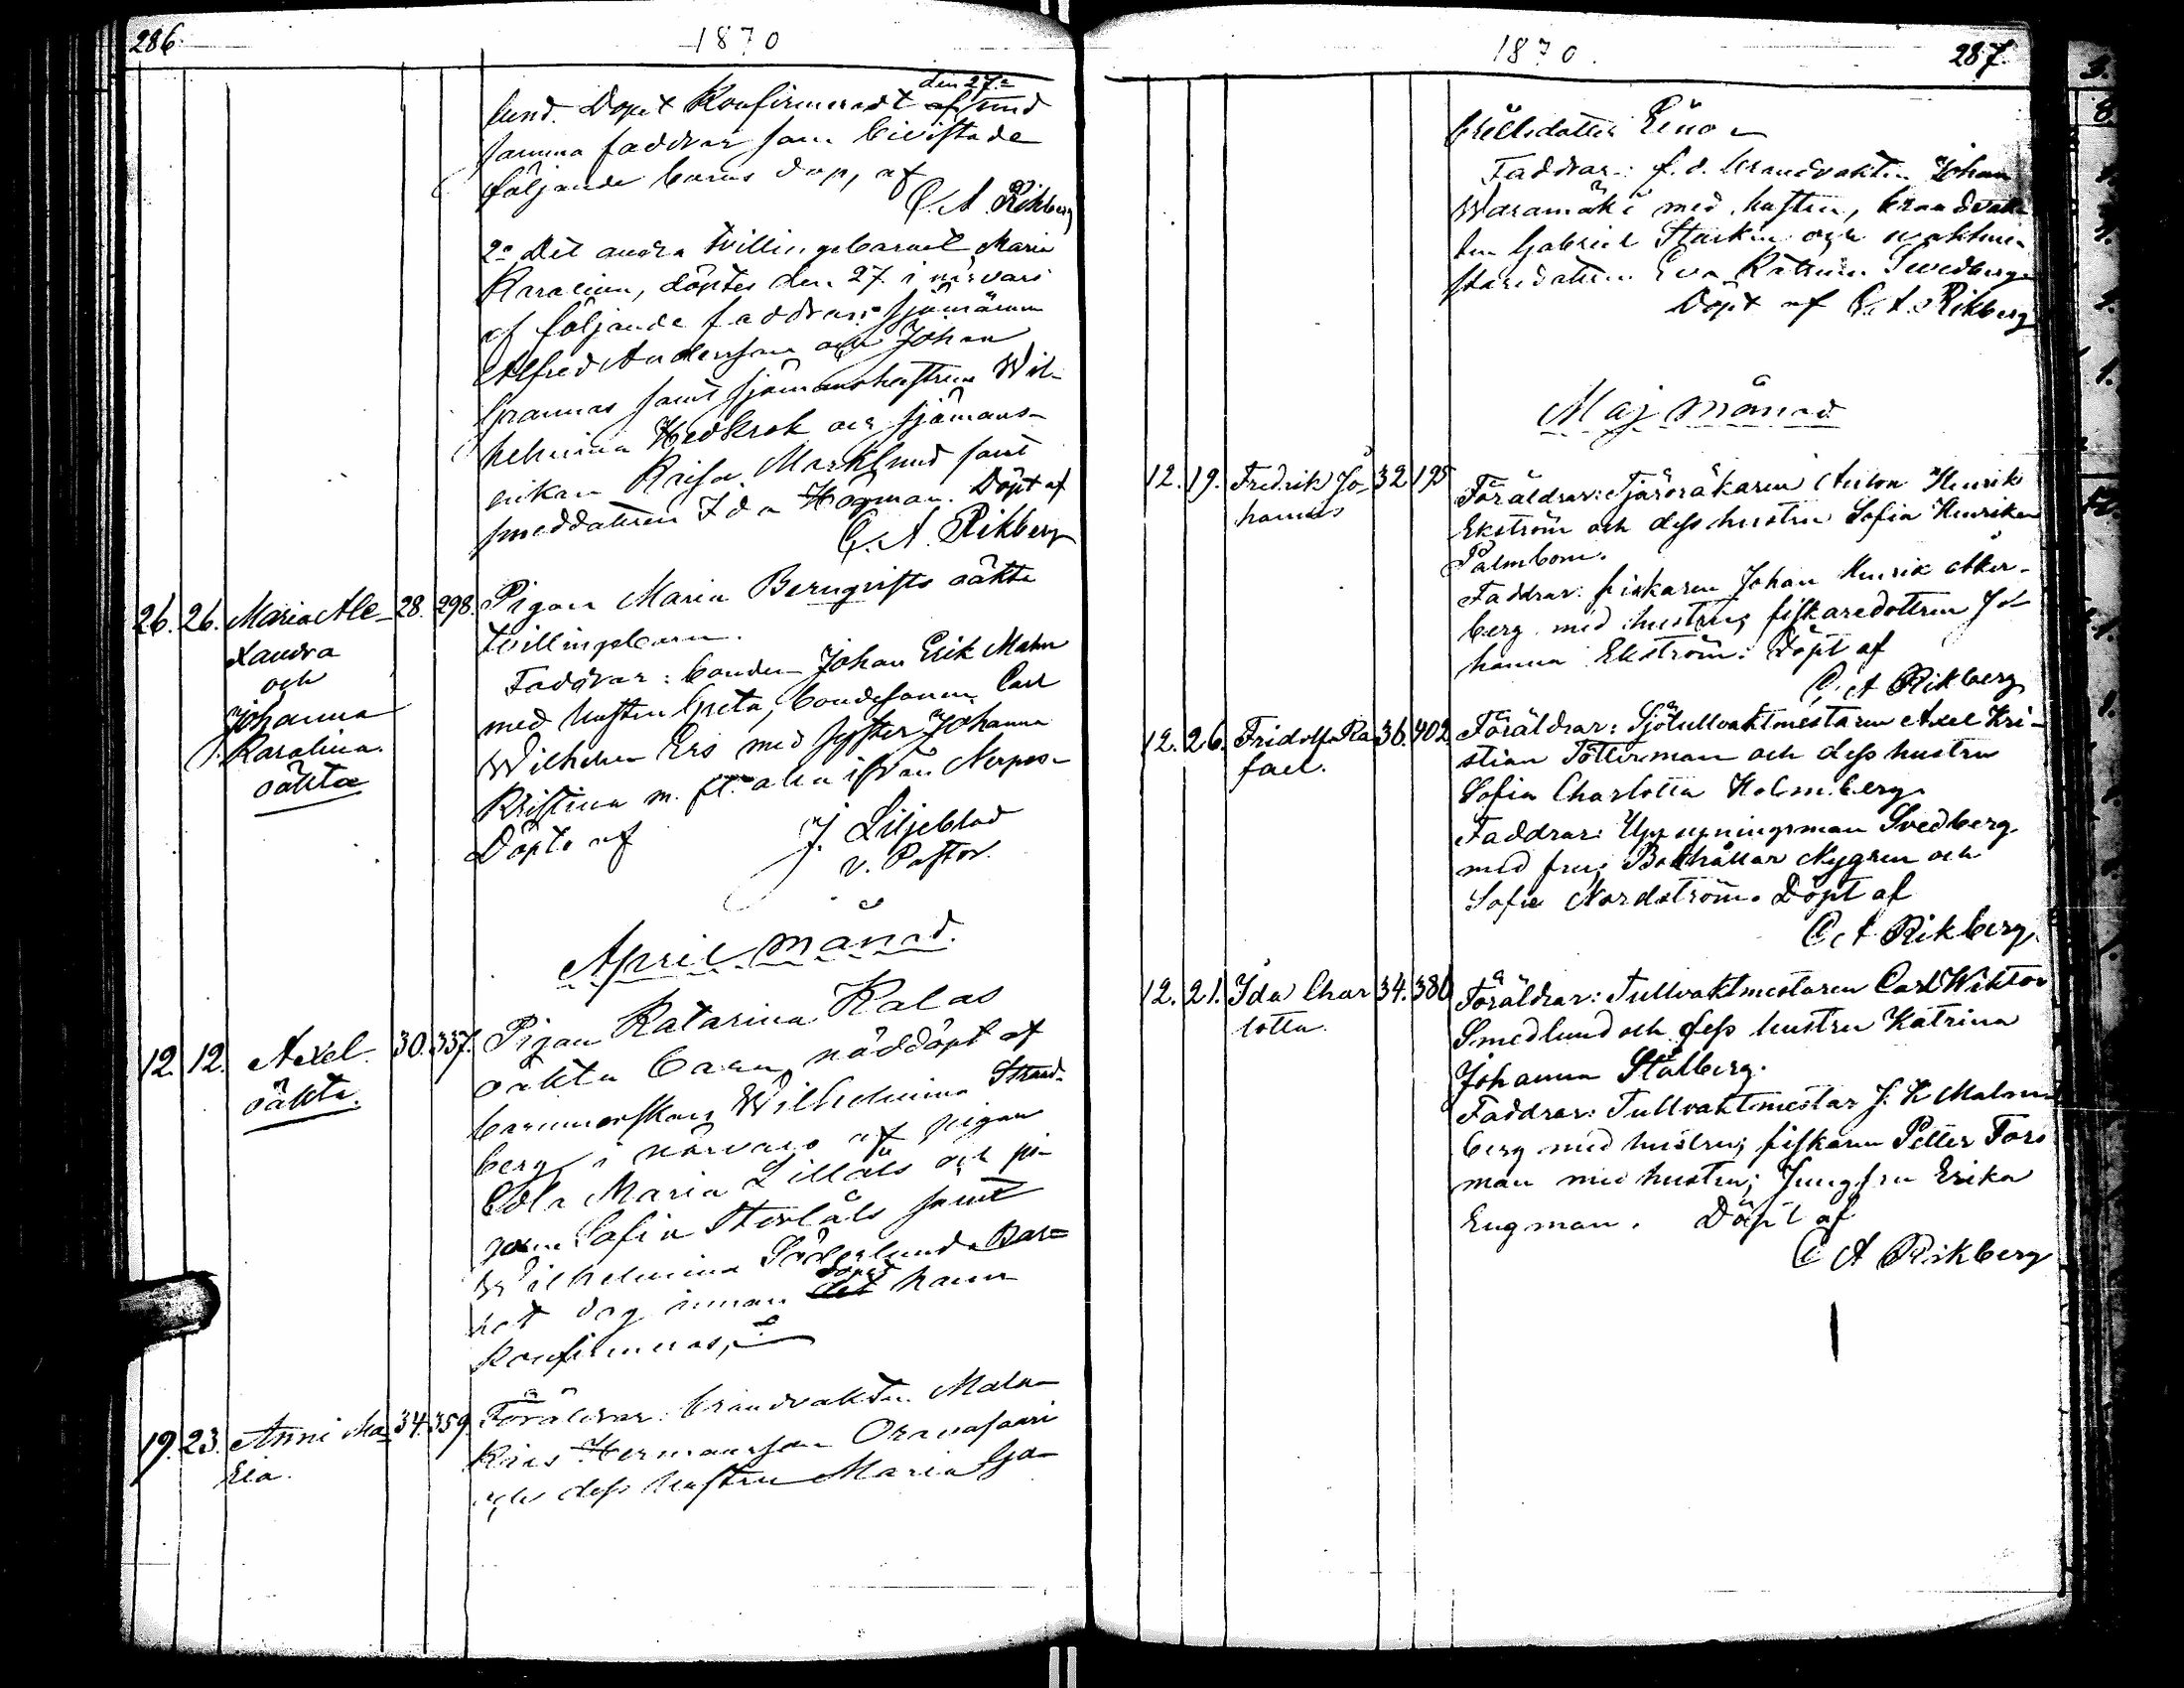 286.
1870
den 27de
lund. Dopet Konfirmeradt af med
samma faddrar som bivistade
följande barns dop, af
C. A. Rikberg
2o Det andra tvillingebarnet Maria
Karolina, döptes den 27. i närvaro
af följande faddrar: sjömännen
Alfred Andersson och Johan
Grannas samt sjömanshustrun Wil-
helmina Hedkrok och sjömans-
enkan Kaisa Marklund samt
smeddottren Ida Högman. Döpt af
C. A. Rikberg
26. 26. Maria Ale-
xandra
och
Johanna
Karolina.
oäkta
28. 298.
Pigan Maria Berngrifts oäkta
tvillingebarn.
Faddrar: bonden Johan Erik Malm
med hustru Greta, bondesonen Carl
Wilhelm Ers med syster Johanna
Kristina m. fl. alla ifrån Nerpes
Döpte af
J. Liljeblad
v. Pastor.
April månad.
12. 12. Axel.
oäkta.
30. 337.
Pigan Katarina Kalas
oäkta barn, nöddöpt af
barnmorskan Wilhelmina Strand-
berg i närvaro af pigan
Maria Lillåls och pi-
gan Sofia Storåls samt
Wilhelmina Söderlund. Bar-
net dog innan dopet det hann
konfirmeras,
19. 23. Anni Ma-
ria.
34. 359.
Föräldrar: brandvakten Mala-
kias Hermansson Oravasaari
och dess hustru Maria Ga-
1870.
287.
brielsdotter Eino
Faddrar: f. d. brandvakten Johan
Waramäki med hustru, brandvak-
ten Gabriel Starkin och vaktmä-
staredottren Eva Katrina Svedberg
Döpt af C. A. Rikberg
Maj månad
12. 19. Fredrik Jo-
hannes
32 195
Föräldrar: Tjäruråkaren Anton Henrik
Ekström och dess hustru Sofia Henrika
Palmbom.
Faddrar: fiskaren Johan Henrik Åker-
berg med hustru; fiskaredottren Jo-
hanna Ekström. Döpt af
C. A Rikberg
12. 26. Fridolf Ra
fael.
36. 402.
Föräldrar: Sjötullvaktmestaren Axel Kri-
stian Tötterman och dess hustru
Sofia Charlotta Holmberg.
Faddrar: Uppsyningsman Svedberg
med fru; Bokhållar Nygren och
Sofie Nordström. Döpt af
C A Rikberg.
12. 21. Ida Char
lotta.
34. 380
Föräldrar: Tullvaktmestaren Carl Wiktor
Smedlund och dess hustru Katrina
Johanna Stålberg.
Faddrar: Tullvaktmestar J. H Malm
berg med hustru; fiskaren Petter Fors
man med hustru; Jungfru Erika
Engman. Döpt af
C A Rikberg